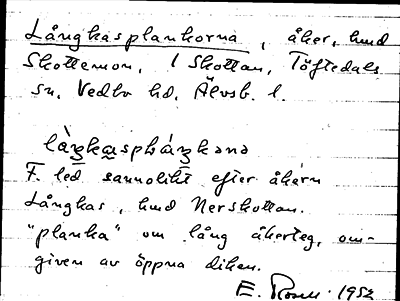 Långkasplankorna, åker, hmd
Skottemon, 1 Skottan, Töftedals
sn, Vedbo hd, Älvsb. l.
F. led sannolikt efter åkern
Långkas, hmd Nerskottan.
"planka" om lång åkerteg, om-
given av öppna diken.
E. 1952